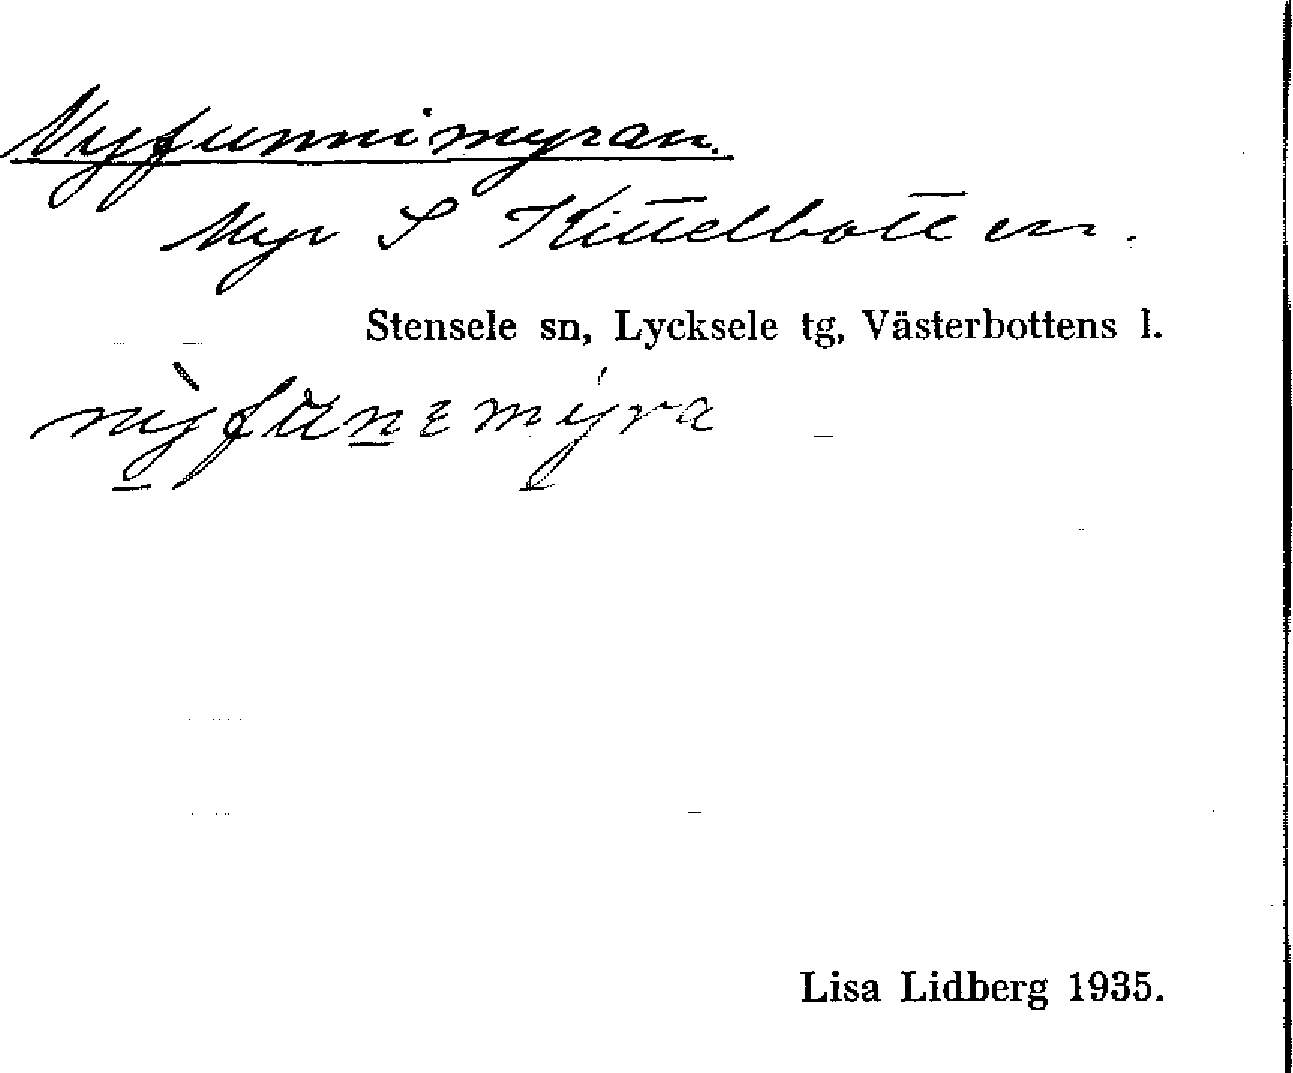 Nyfunnimyran.
Myr S Kittelbotten.
Stensele sn, Lycksele tg, Västerbottens l.
Lisa Lidberg 1935.